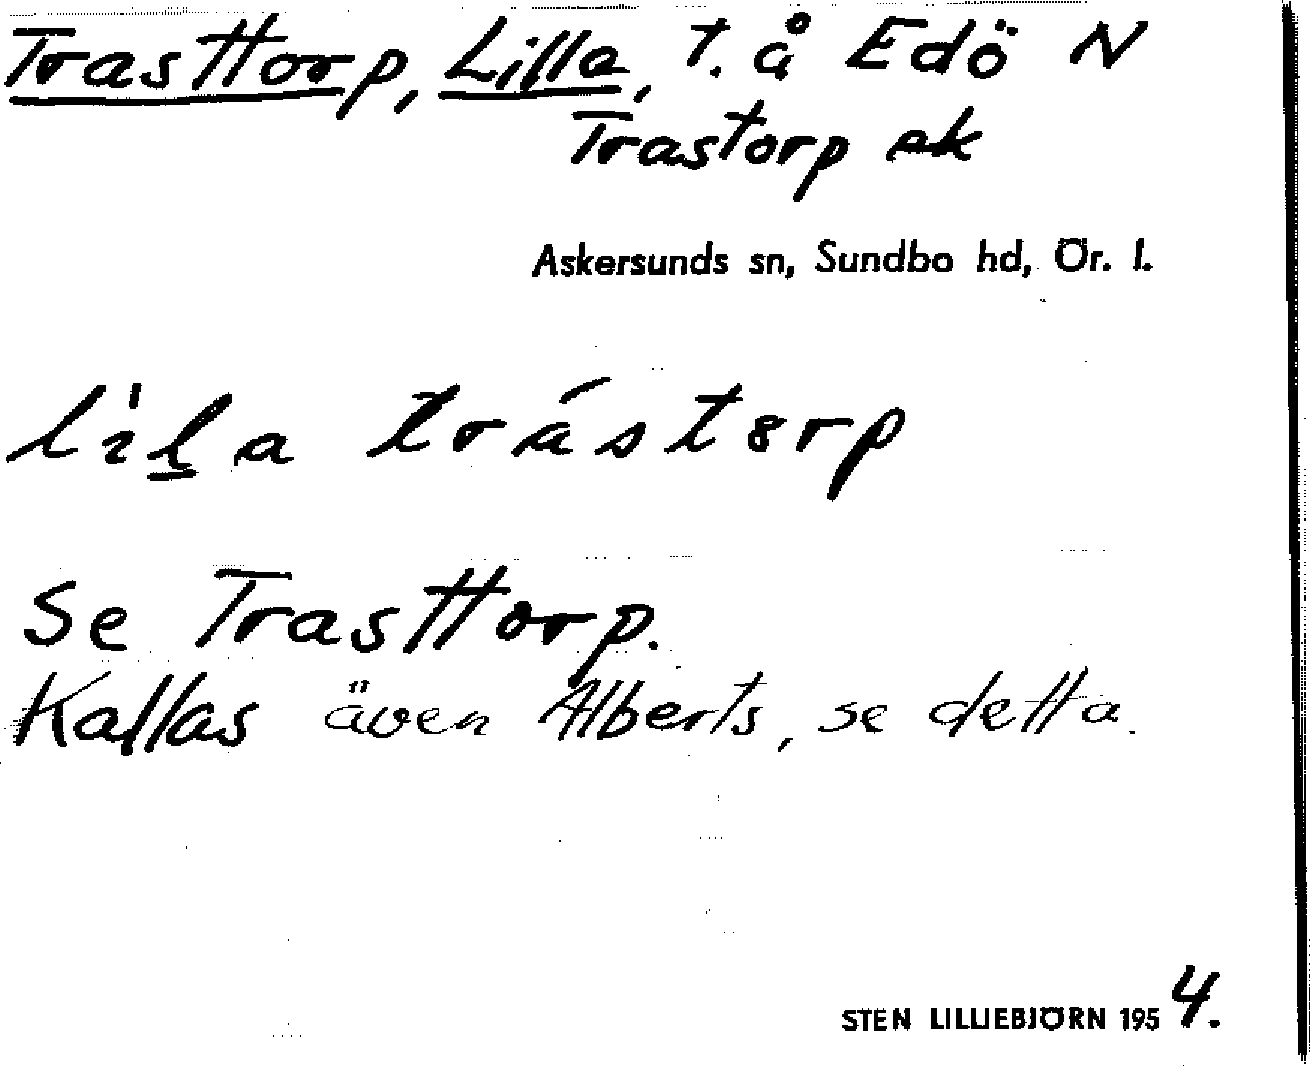 Trasttorp, Lilla, t. å Edö N
Trastorp ek
Askersunds sn, Sundbo hd, Ör. l.
Se Trasttorp.
Kallas även Alberts, se detta.
STEN LILLIEBJÖRN 1954.